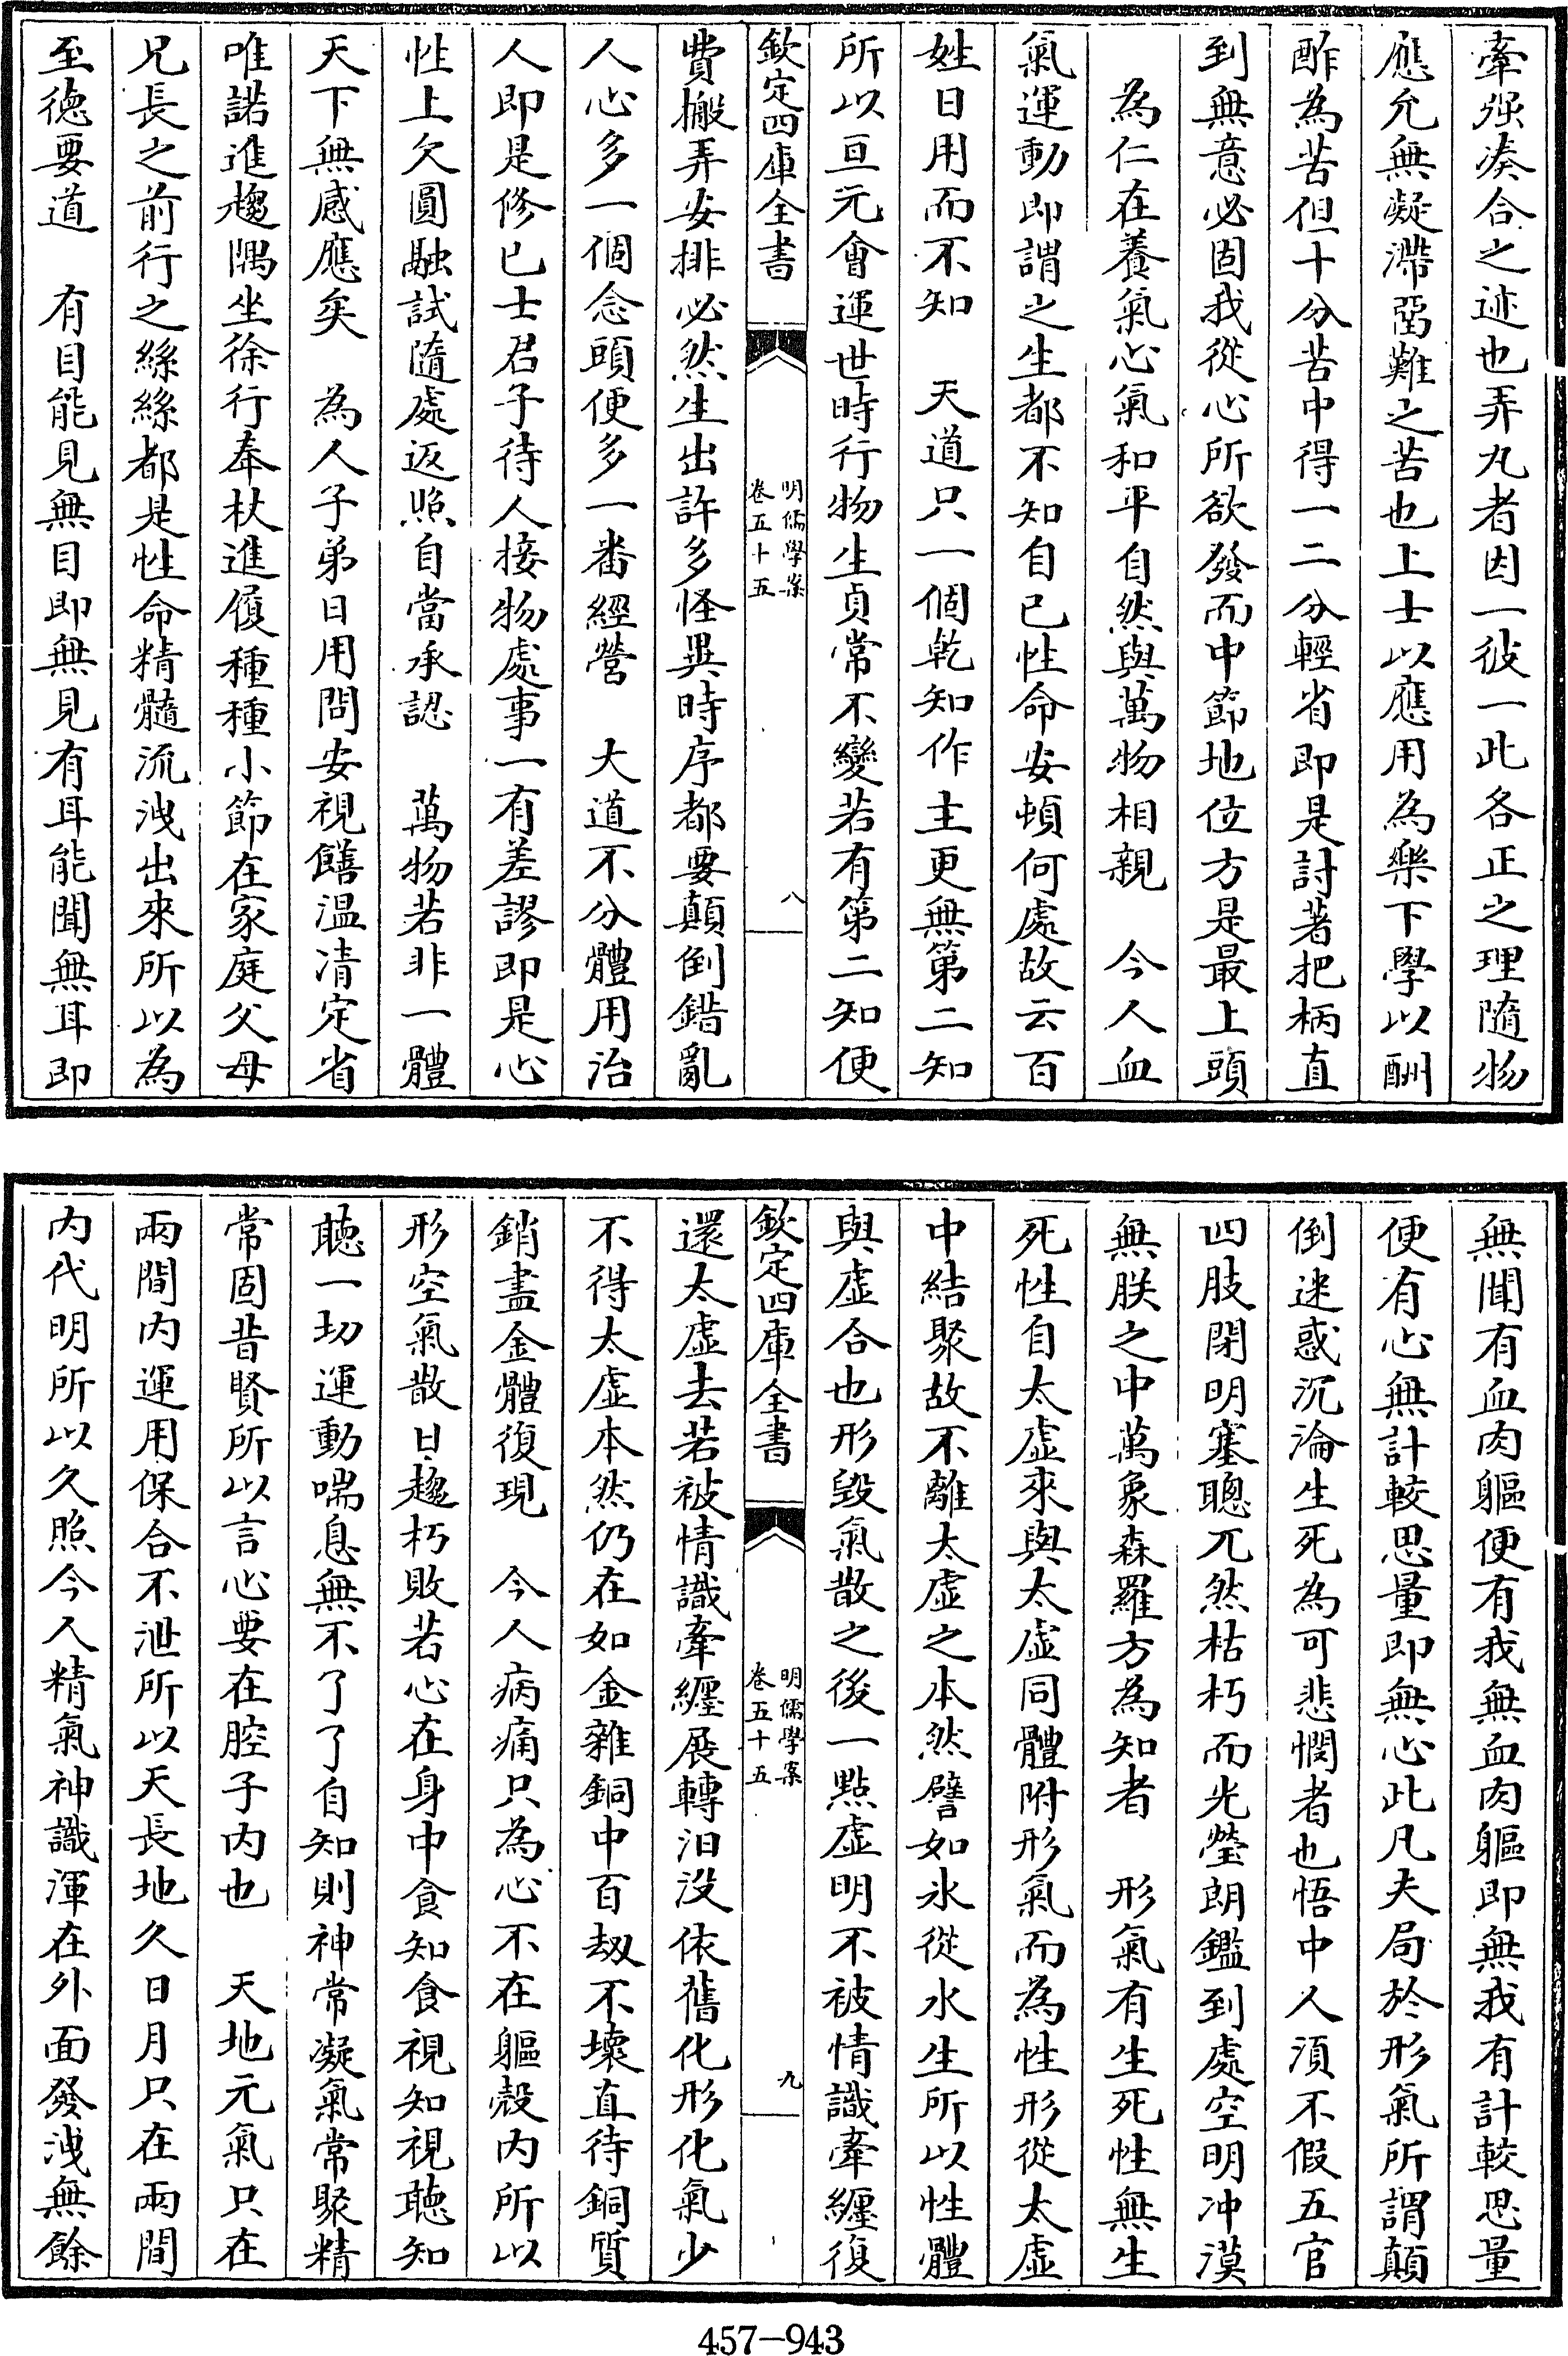 牽强湊合之迹也弄丸者因一彼一此各正之理隨物
應允無凝滯臲難之苦也上士以應用為樂下學以酬
酢為苦但十分苦中得一二分輕省即是討著把柄直
到無意必固我從心所欲發而中節地位方是最上頭
為仁在養氣心氣和平自然與萬物相親　今人血
氣運動即謂之生都不知自已性命安頓何處故云百
姓日用而不知　天道只一個乾知作主更無第二知
所以亘元會運世時行物生貞常不變若有第二知便
欽定四庫全書
明儒學案
卷五十五
八
費搬弄安排必然生出許多怪異時序都要顛倒錯亂
人心多一個念頭便多一番經營　大道不分體用治
人即是修已士君子待人接物處事一有差謬即是心
性上欠圓融試隨處返照自當承認　萬物若非一體
天下無感應矣　為人子弟日用問安視饍溫凊定省
唯諾進趨隅坐徐行奉杖進履種種小節在家庭父母
兄長之前行之絲絲都是性命精髓流洩出來所以為
至德要道　有目能見無目即無見有耳能聞無耳即
無聞有血肉軀便有我無血肉軀即無我有計較思量
便有心無計較思量即無心此凡夫局於形氣所謂顛
倒迷惑沉淪生死為可悲憫者也悟中人須不假五官
四肢閉明塞聰兀然枯朽而光瑩朗鑑到處空明冲漠
無朕之中萬象森羅方為知者　形氣有生死性無生
死性自太虛來與太虛同體附形氣而為性形從太虛
中結聚故不離太虛之本然譬如氷從水生所以性體
與虛合也形毀氣散之後一點虛明不被情識牽纏復
欽定四庫全書
明儒學案
卷五十五
九
還太虛去若被情識牽纏展轉汨没依舊化形化氣少
不得太虛本然仍在如金雜銅中百刼不壞直待銅質
銷盡金體復現　今人病痛只為心不在軀殼内所以
形空氣散日趨朽敗若心在身中食知食視知視聽知
聽一切運動喘息無不了了自知則神常凝氣常聚精
常固昔賢所以言心要在腔子内也　天地元氣只在
兩間内運用保合不泄所以天長地久日月只在兩間
内代明所以久照今人精氣神識渾在外面發洩無餘
457-943